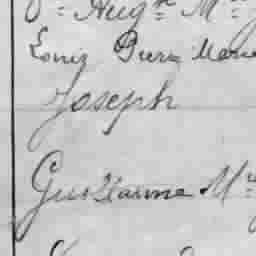 Augte M
Louis Pierre Marie
Joseph
Guillaume M